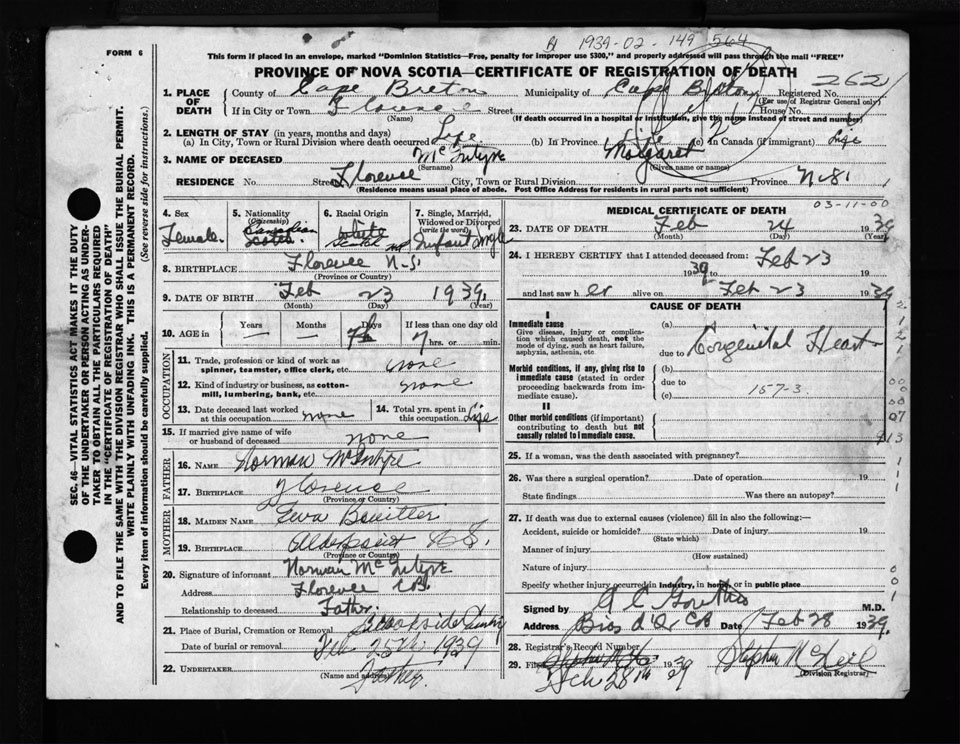 FORM 6
1939-02-149 564
This form if placed in an envelope, marked "Dominion Statistics—Free, penalty for improper use $300," and properly addressed will pass through the mail "FREE"
PROVINCE OF NOVA SCOTIA—CERTIFICATE OF REGISTRATION OF DEATH
262
1. PLACE OF DEATH County of Cape Breton Municipality of Cape Breton Registered No.
(For use of Registrar General only)
If in City or Town Florence Street House No.
(Name) (If death occurred in a hospital or institution, give the name instead of street and number)
2. LENGTH OF STAY (in years, months and days)
(a) In City, Town or Rural Division where death occurred Life (b) In Province Life (c) In Canada (if immigrant) Life
3. NAME OF DECEASED McIntyre Margaret
(Surname) (Given name or names)
RESIDENCE No. Street Florence City, Town or Rural Division Province N.S.
(Residence means usual place of abode. Post Office Address for residents in rural parts not sufficient)
SEC. 46—VITAL STATISTICS ACT MAKES IT THE DUTY
OF THE UNDERTAKER OR PERSON ACTING AS UNDER-
TAKER TO OBTAIN ALL THE PARTICULARS REQUIRED
IN THE "CERTIFICATE OF REGISTRATION OF DEATH"
AND TO FILE THE SAME WITH THE DIVISION REGISTRAR WHO SHALL ISSUE THE BURIAL PERMIT.
WRITE PLAINLY WITH UNFADING INK. THIS IS A PERMANENT RECORD.
Every item of information should be carefully supplied. (See reverse side for instructions.)
4. Sex Female
5. Nationality (Citizenship) Canadian Scotch
6. Racial Origin White Scotch
7. Single, Married, Widowed or Divorced (write the word) Infant Single
8. BIRTHPLACE Florence N.S.
(Province or Country)
9. DATE OF BIRTH Feb 23 1939
(Month) (Day) (Year)
10. AGE in Years Months Days If less than one day old
7 hrs. or min.
OCCUPATION
11. Trade, profession or kind of work as spinner, teamster, office clerk, etc. none
12. Kind of industry or business, as cotton-mill, lumbering, bank, etc. none
13. Date deceased last worked at this occupation none 14. Total yrs. spent in this occupation Life
15. If married give name of wife or husband of deceased none
FATHER
16. NAME Norman McIntyre
17. BIRTHPLACE Florence
(Province or Country)
MOTHER
18. MAIDEN NAME Eva Boutilier
19. BIRTHPLACE N.S.
(Province or Country)
20. Signature of informant Norman McIntyre
Address Florence C.B.
Relationship to deceased Father
21. Place of Burial, Cremation or Removal Brookside
Date of burial or removal Feb 25th 1939
22. UNDERTAKER Father
(Name and address)
03-11-00
MEDICAL CERTIFICATE OF DEATH
23. DATE OF DEATH Feb 24 1939
(Month) (Day) (Year)
24. I HEREBY CERTIFY that I attended deceased from: Feb 23
1939 19
and last saw her alive on Feb 23 1939
CAUSE OF DEATH
I
Immediate cause
Give disease, injury or complication which caused death, not the mode of dying, such as heart failure, asphyxia, asthenia, etc
(a)
due to Congenital Heart
Morbid conditions, if any, giving rise to immediate cause (stated in order proceeding backwards from immediate cause).
(b)
due to
(c) 157-3.
II
Other morbid conditions (if important) contributing to death but not causally related to immediate cause.
25. If a woman, was the death associated with pregnancy?
26. Was there a surgical operation? Date of operation 19
State findings Was there an autopsy?
27. If death was due to external causes (violence) fill in also the following:—
Accident, suicide or homicide? Date of injury 19
(State which)
Manner of injury
(How sustained)
Nature of injury
Specify whether injury occurred in industry, in home, or in public place
Signed by M.D.
Address Bras d'Or CB Date Feb 28 1939
28. Registrar's Record Number
29. Filed Feb 28th 1939 Stephen McNeil
(Division Registrar)